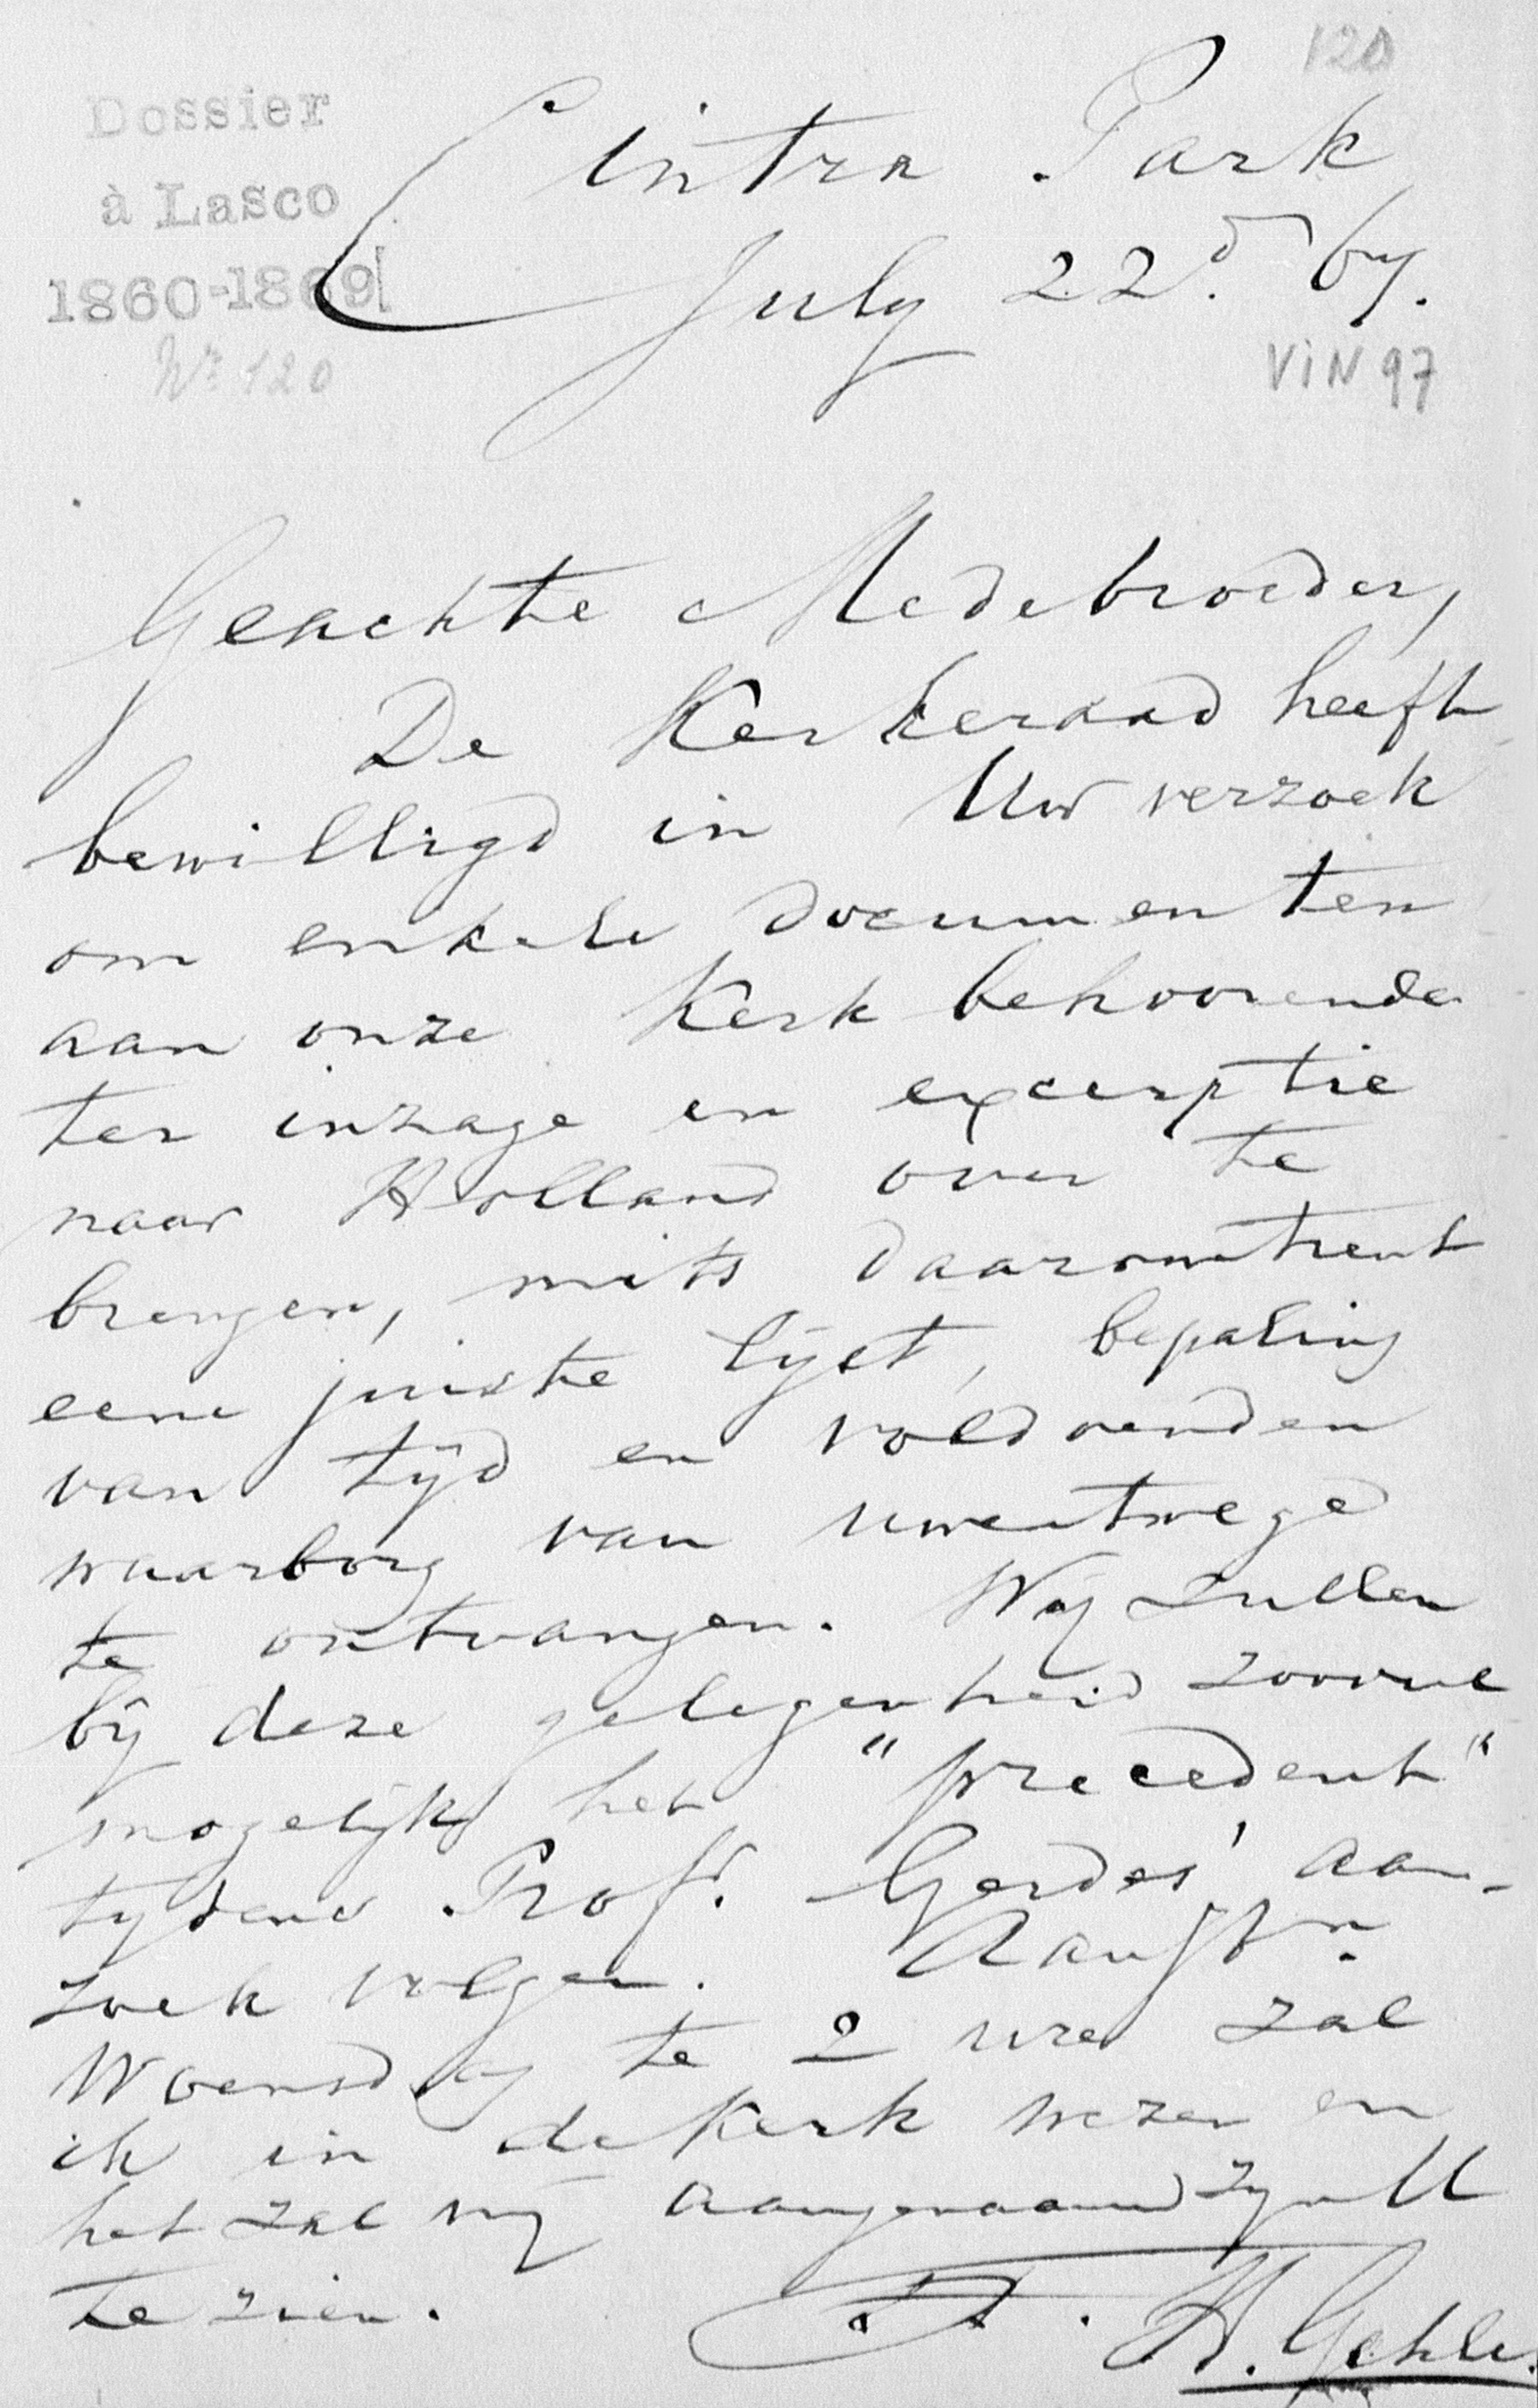 120
Dossier
à Lasco
1860-1869
Nr 120
Cintra Park
July 22d. 67.
VIN 97
Geachte Medebroeder,
De Kerkeraad heeft
bewilligd in Uw verzoek
om enkele documenten
aan onze Kerk behoorende
ter inzage en excerptie
naar Holland over te
brengen, mits daaromtrent
eene juiste lijst, bepaling
van tijd en voldoenden
waarborg van uwentwege
te ontvangen. Wij zullen
bij deze gelegenheid zooveel
mogelijk het "precedent"
tydens Prof. Gerdes' aan-
zoek volgen. Aanstn.
Woensdag te 2 ure zal
ik in de Kerk wezen en
het zal mij aangenaam zyn U
te zien.
H. Gehle.